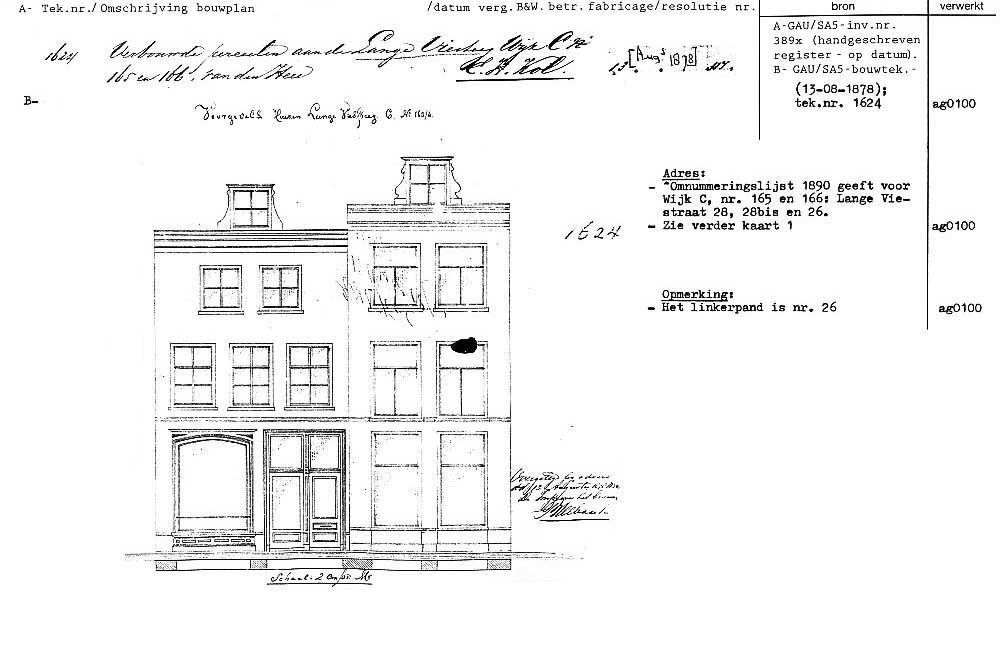 A- Tek.nr./ Omschrijving bouwplan /datum verg.B&W. betr. fabricage/resolutie nr. bron verwerkt
1624 Verbouwde perceelen aan de Lange Viesteeg Wijk C No
165 en 166. van den Heer K. H. Kol. 13 [Augs 1878]
A-GAU/SA5-inv.nr.
389x (handgeschreven
register - op datum).
B- GAU/SA5-bouwtek.-
(13-08-1878);
tek.nr. 1624 ag0100
B-
Voorgevels Huizen Lange Viesteeg C. No 165/6.
1624
Adres:
- *Omnummeringslijst 1890 geeft voor
Wijk C, nr. 165 en 166: Lange Vie-
straat 28, 28bis en 26.
- Zie verder kaart 1 ag0100
ag0100
Opmerking:
- Het linkerpand is nr. 26 ag0100
Schaal. 2 Ctm pr. Mr